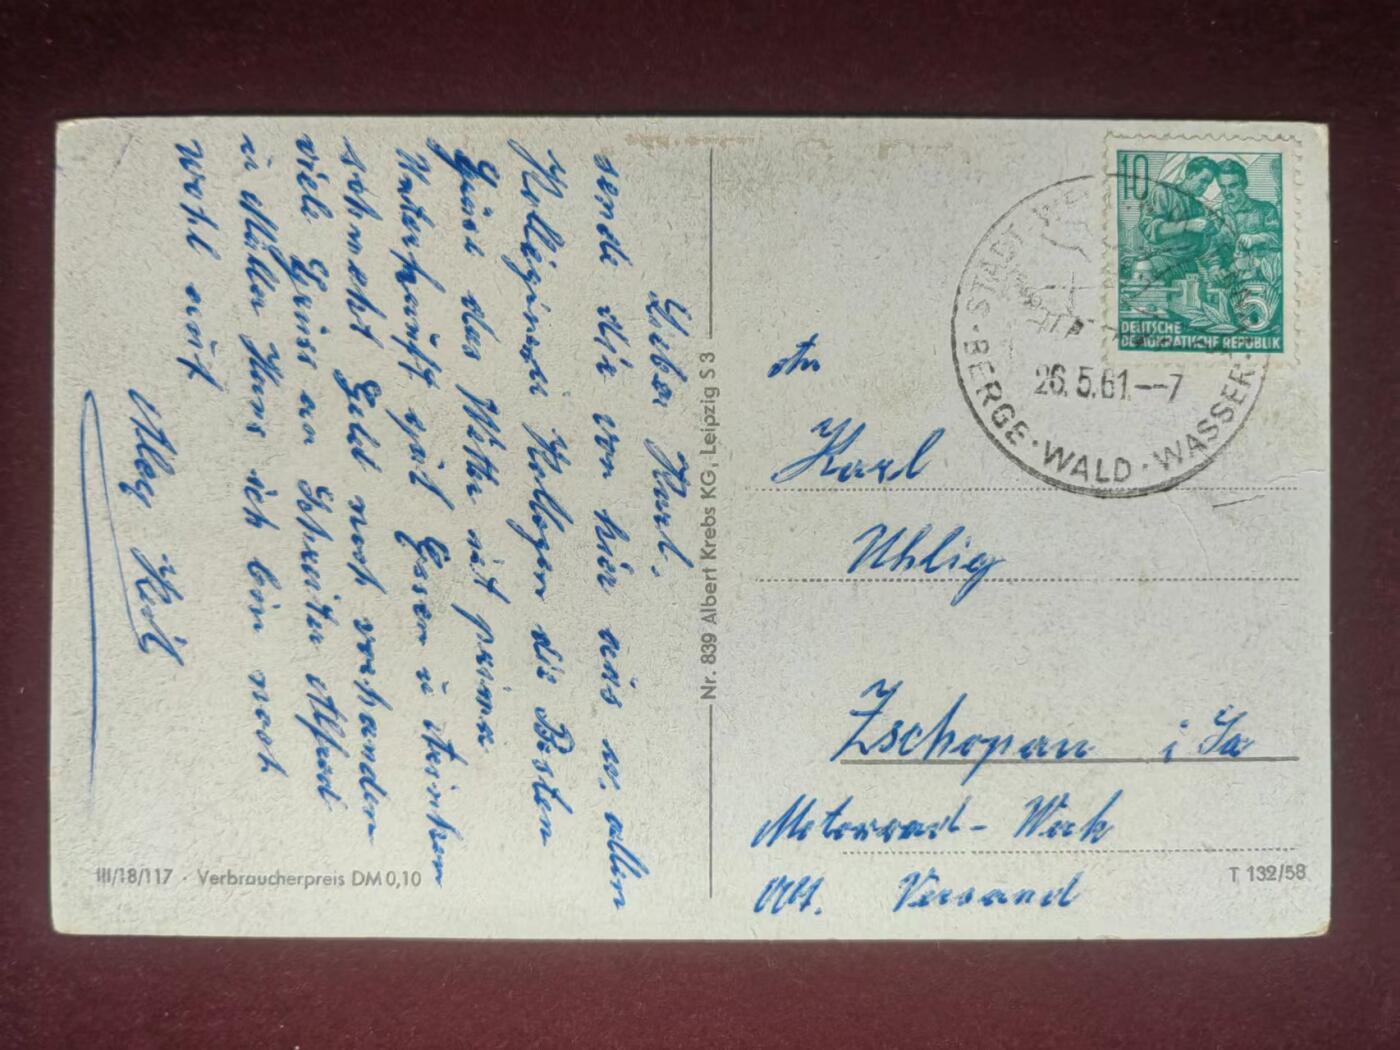 Lieber Karl.
sende dir von hier aus u. allen
Kolleginnen Kollegen die Besten
Grüße das Wetter ist prima
Unterkunft gut Essen u trinken
schmeckt Geld noch vorhanden
viele Grüss an Alfred
u Müller Hans ich bin noch
wohl auf
10
5
DEUTSCHE
DEMOKRATISCHE REPUBLIK
STADT
26.5.61.--7
BERGE · WALD · WASSER
An
Karl
Uhlig
Zschopau i Sa
Motorrad- Werk
Abt. Versand
Nr. 839 Albert Krebs KG, Leipzig S 3
III/18/117 · Verbraucherpreis DM 0,10
T 132/58